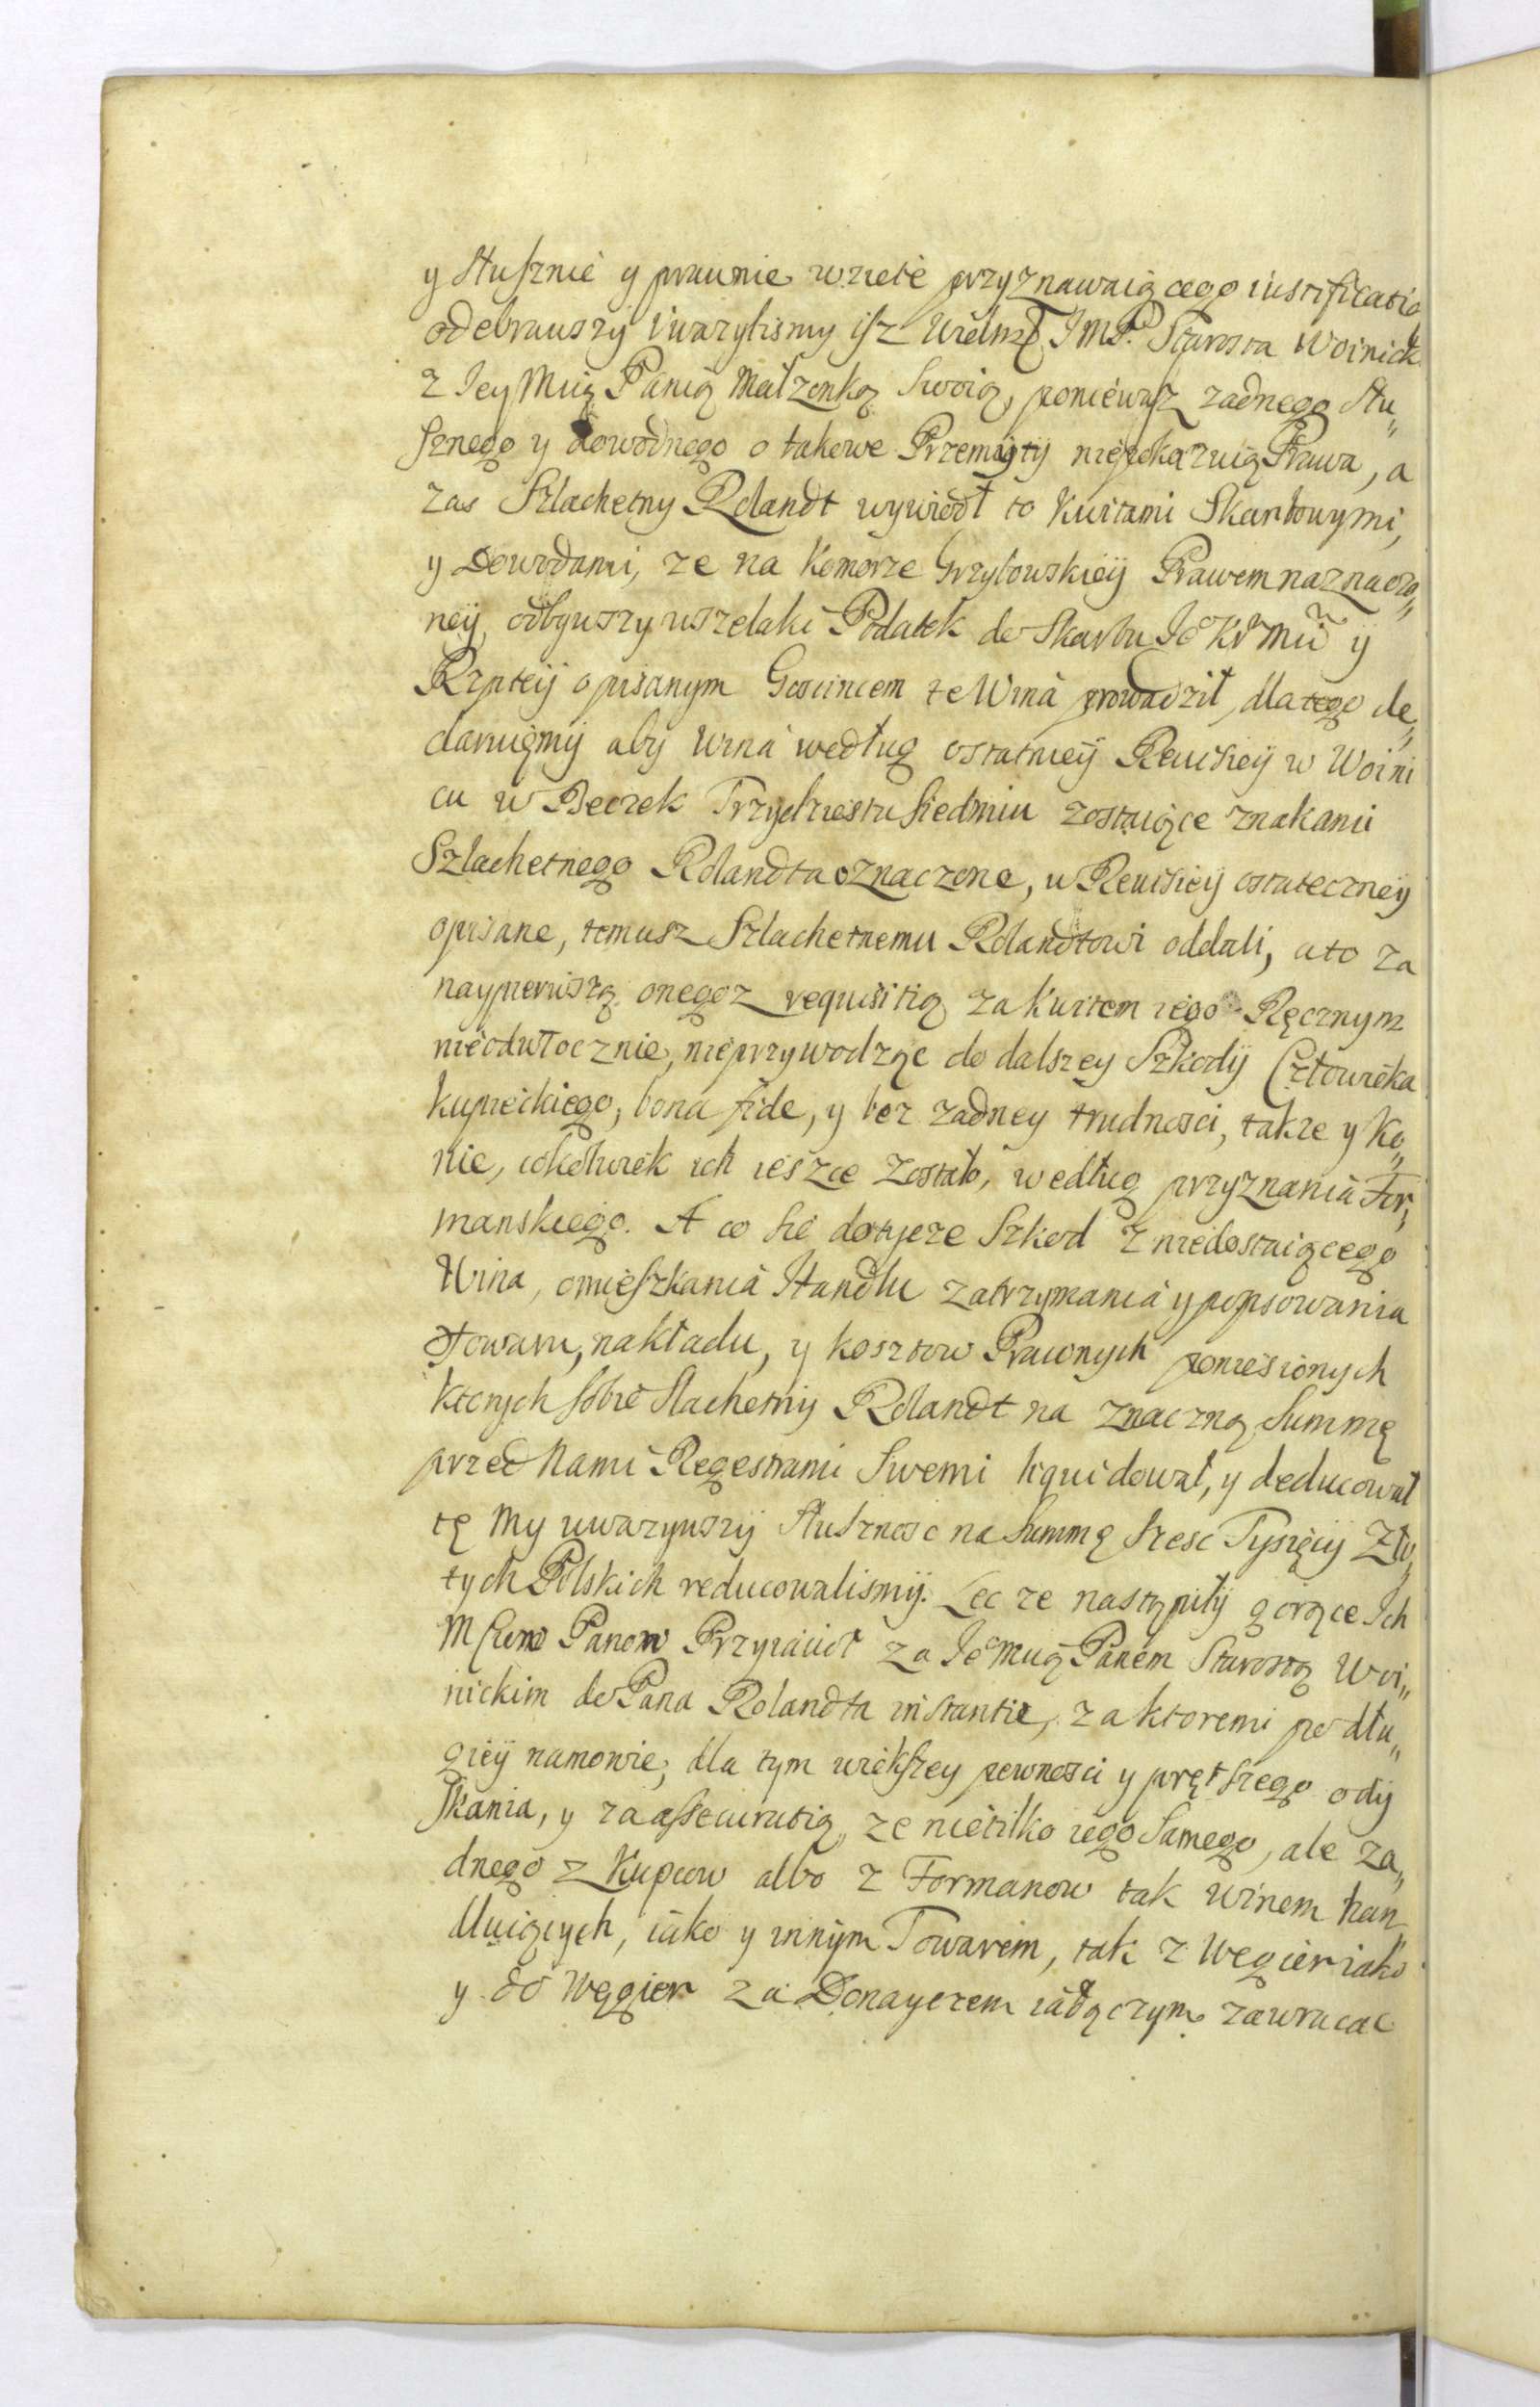 y słusznie y prawnie wziete przyznawaiącego iustificatią
odebrawszy uwazylismy isz Wielmꝫ JMP. Starosta Woinick
z Jey Mcią Panią Małzonką Swoią, poniewasz zadnego słu„
sznego y dowodnego o takowe Przemyty niepokazuią Prawa, a
zas Szlachetny Rolandt wywiodł to Kwitami Skarbowymi,
y Dowodami, ze na Komorze Grzybowskieÿ Prawem naznaczo„
neÿ, odbywszy wszelaki Podatek do Skarbu Jº Kr Mci ÿ
Rzpteÿ opisanym Goscincem te Wina prowadził, dlatego de„
claruięmÿ abÿ Wina według ostatnieÿ Rewisieÿ w Woini
cu w Beczek Trzydziestu siedmiu zostaiące znakami
Szlachetnego Rolandta oznaczone, w Rewisieÿ ostateczneÿ
opisane, temusz Szlachetnemu Rolandtowi oddali, a to za
naypierwszą onegoz requisitią za Kwitem iego Ręcznym
nieodwłocznie, nieprzywodząc do dalszey Szkodÿ Człowieka
kupieckiego, bona fide, y bez zadney trudnosci, takze y Ko„
nie, cokolwiek ich ieszce zostało, według przyznania For„
manskiego. A co sie dotycze Szkod z niedostaiącego
Wina, omieszkania Handlu zatrzymania y popsowania
Towaru, nakładu, y kosztow Prawnych poniesionych
ktorych sobie Slachetnÿ Rolandt na znaczną Summę
przed Nami Regestrami Swemi liquidował, y deducował
tę My uwazywszÿ słusznosc na Summę szesc Tysięcÿ Zło„
tych Polskich reducowalismÿ. Lec ze nastąpiłÿ gorące Ich
MCiow Panow Przyiacioł za Jº Mcią Panem Starostą Woi„
nickim do Pana Rolandta instantie, za ktoremi po dłu„
gieÿ namowie, dla tym wiekszey pewnosci y prętszego odÿ
skania, y za assecuratią, ze nietilko iego Samego, ale za„
dnego z Kupcow albo z Formanow tak winem han
dluiących, iako y innÿm Towarem, tak z Węgier iako
y do Węgier za Donaycem iadączym zawracac